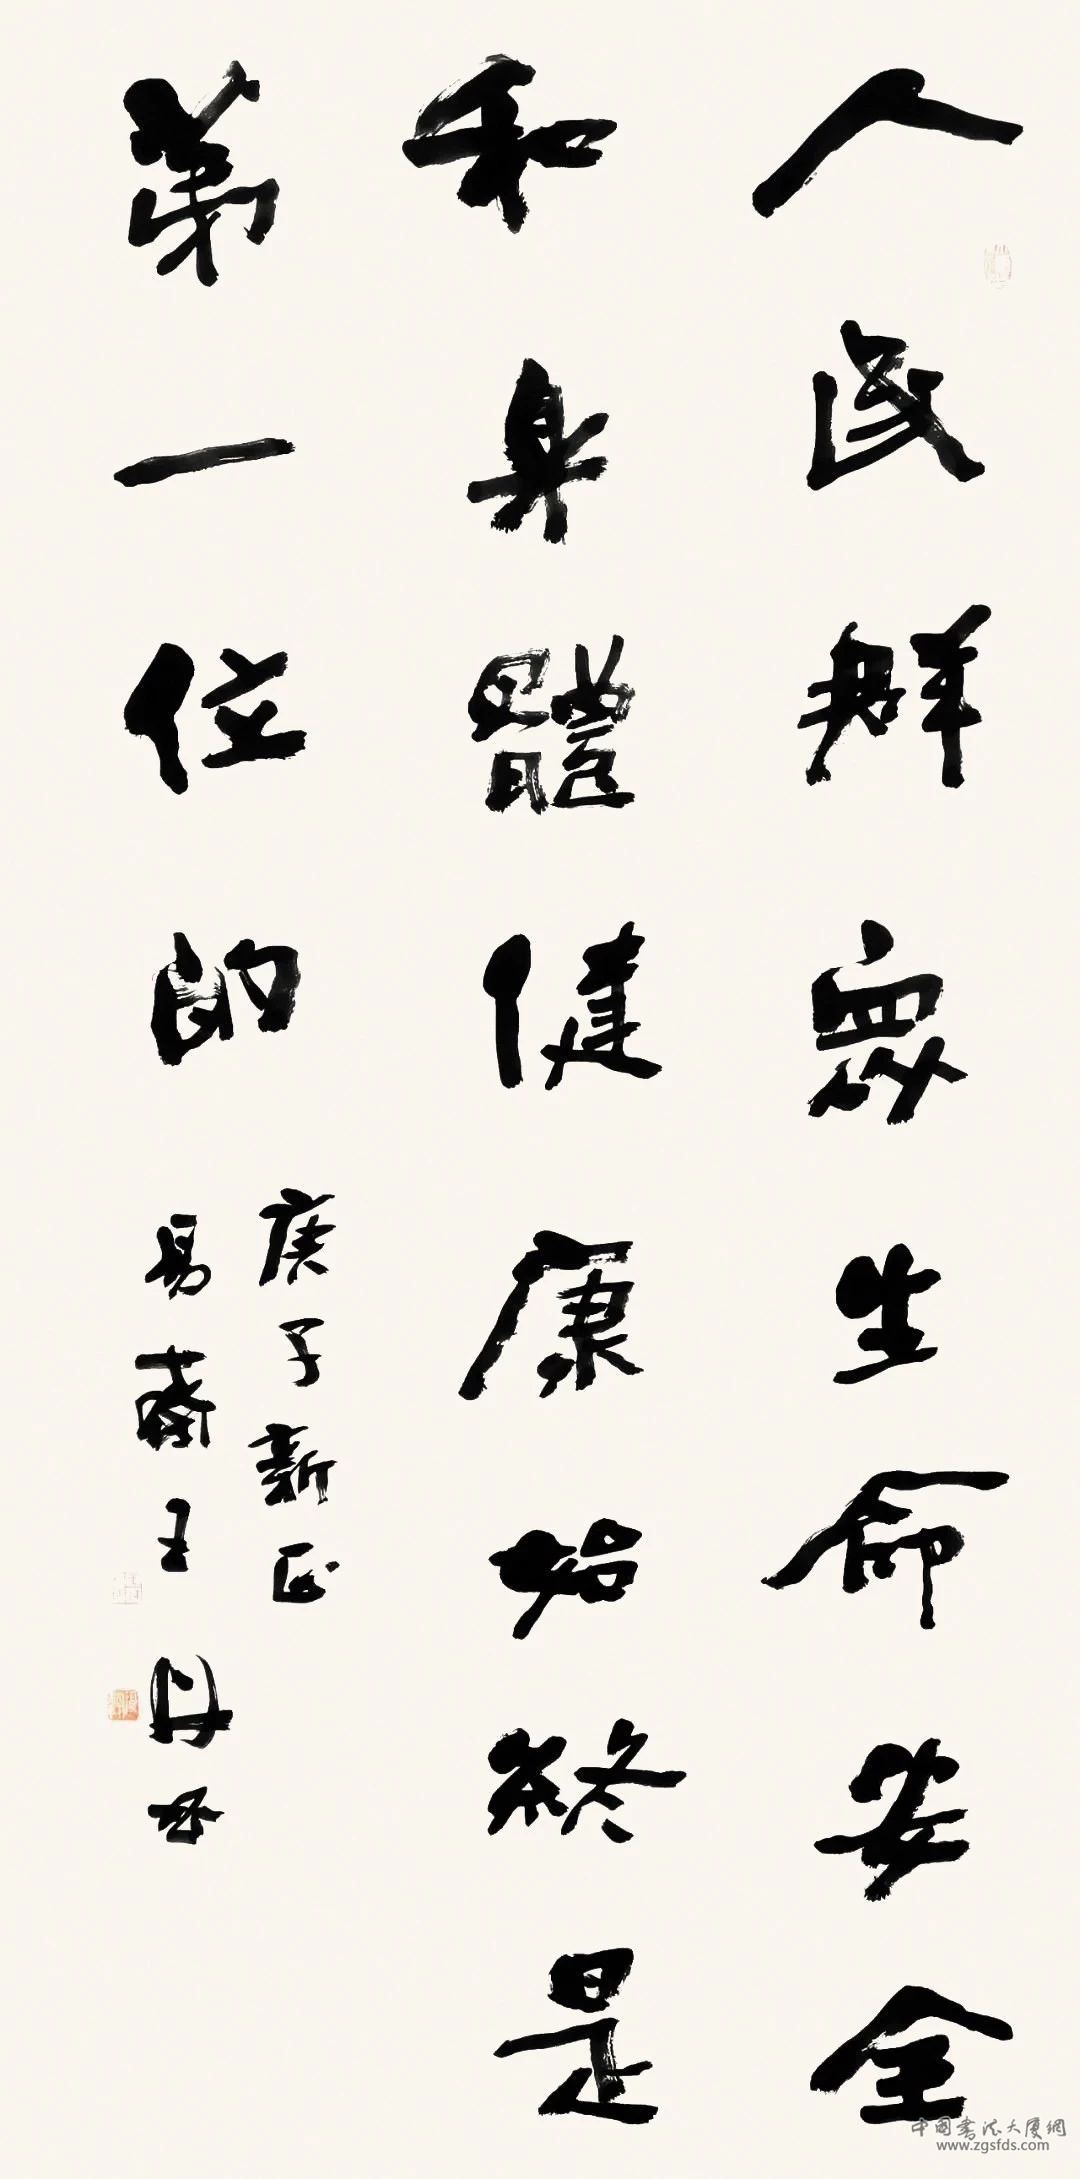 人民群眾生命安全
和身體健康始終是
第一位的
庚子新正
易齋王丹
中国书法大厦網
www.zgsfds.com